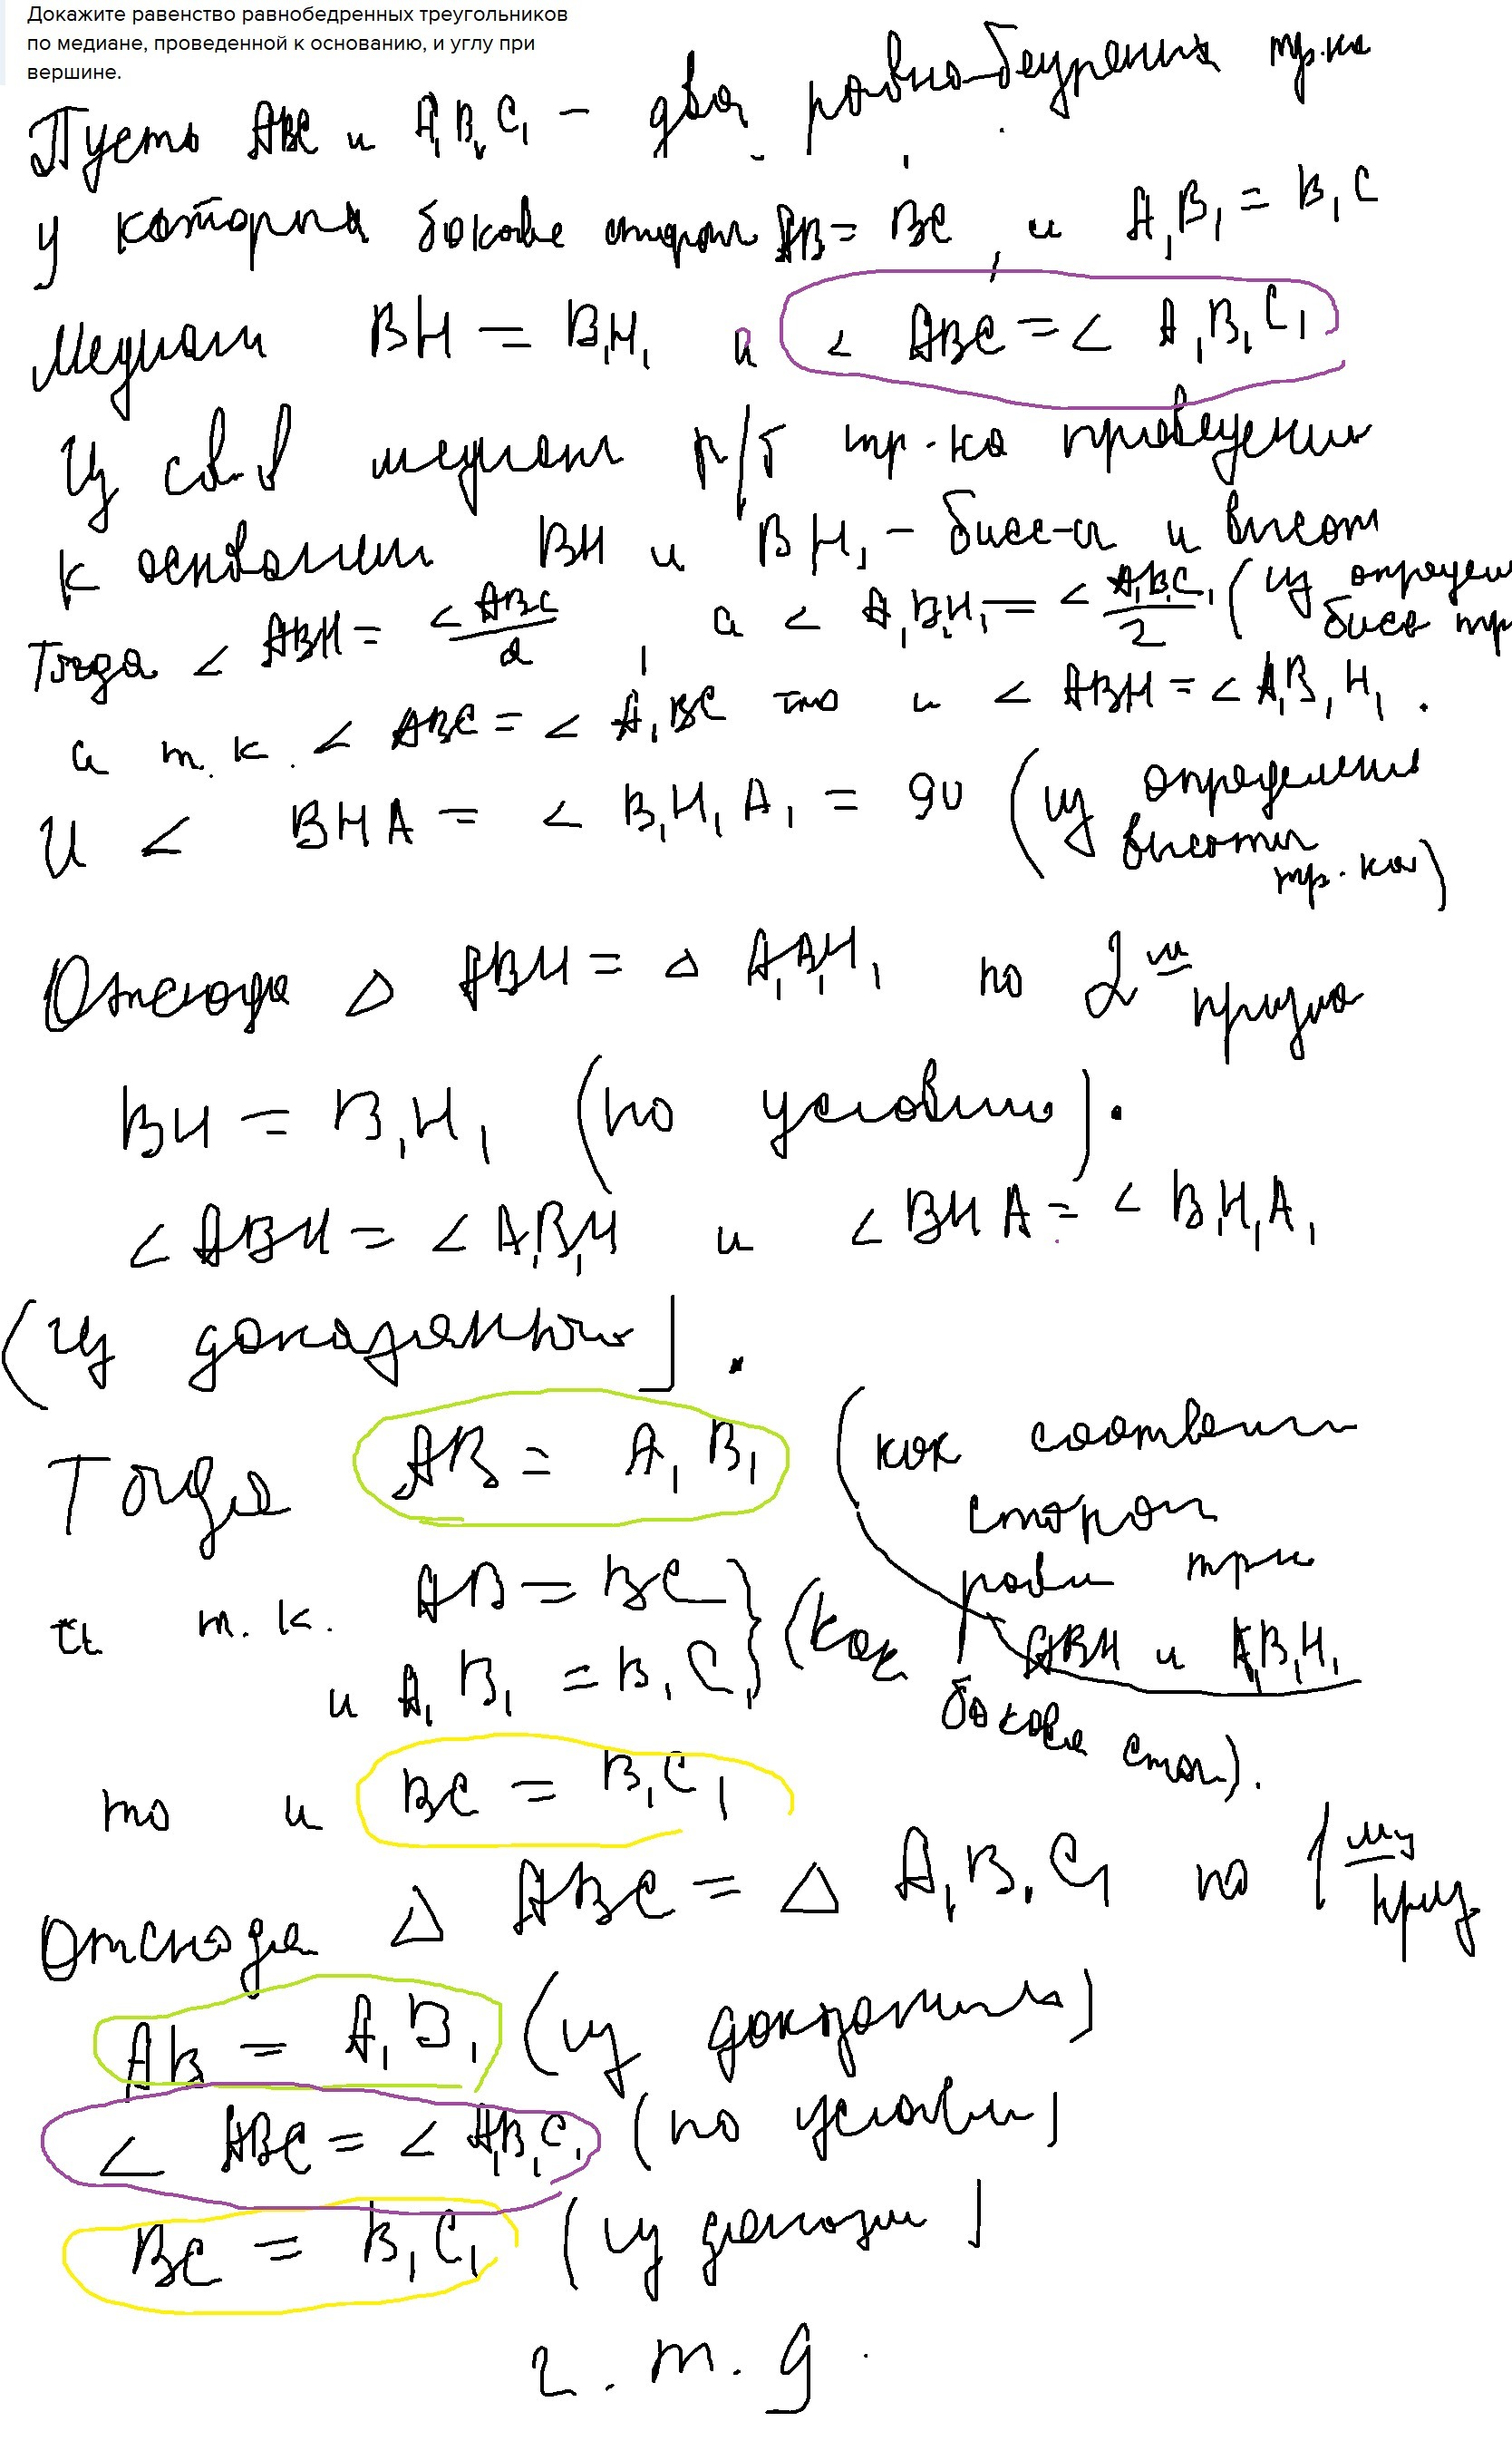 Докажите равенство равнобедренных треугольников
по медиане, проведенной к основанию, и углу при
вершине.
Пусть ABC и A₁B₁C₁ – два равнобедрених тр.ка
у которых боковые сторон AB = BC, и A₁B₁ = B₁C
Медиан BH = B₁H₁ и < ABC = < A₁B₁C₁
Из св-в медиан р/б тр-ка проведен
к основанию BH и BH₁ – бисс-а и высот
Тогда < ABH = < ABC / 2, а < A₁B₁H₁ = < A₁B₁C₁ / 2 (из определ бисс тр
а т.к. < ABC = < A₁BC то и < ABH = < A₁B₁H₁.
И < BHA = < B₁H₁A₁ = 90 (из определение высоты тр.ка)
Отсюда △ ABH = △ A₁B₁H₁ по 2му призна
BH = B₁H₁ (по условию).
< ABH = < A₁B₁H и < BHA = < B₁H₁A₁
(из доказанного).
Тогда AB = A₁B₁ (как соответст
сторон
равн трк
ABH и A₁B₁H₁
а т.к. AB = BC
и A₁B₁ = B₁C₁ } (как
боковые стор).
то и BC = B₁C₁
Отсюда △ ABC = △ A₁B₁C₁ по 1му приз
AB = A₁B₁ (из доказаного)
< ABC = < A₁B₁C₁ (по услови)
BC = B₁C₁ (из доказан)
ч.т.д.